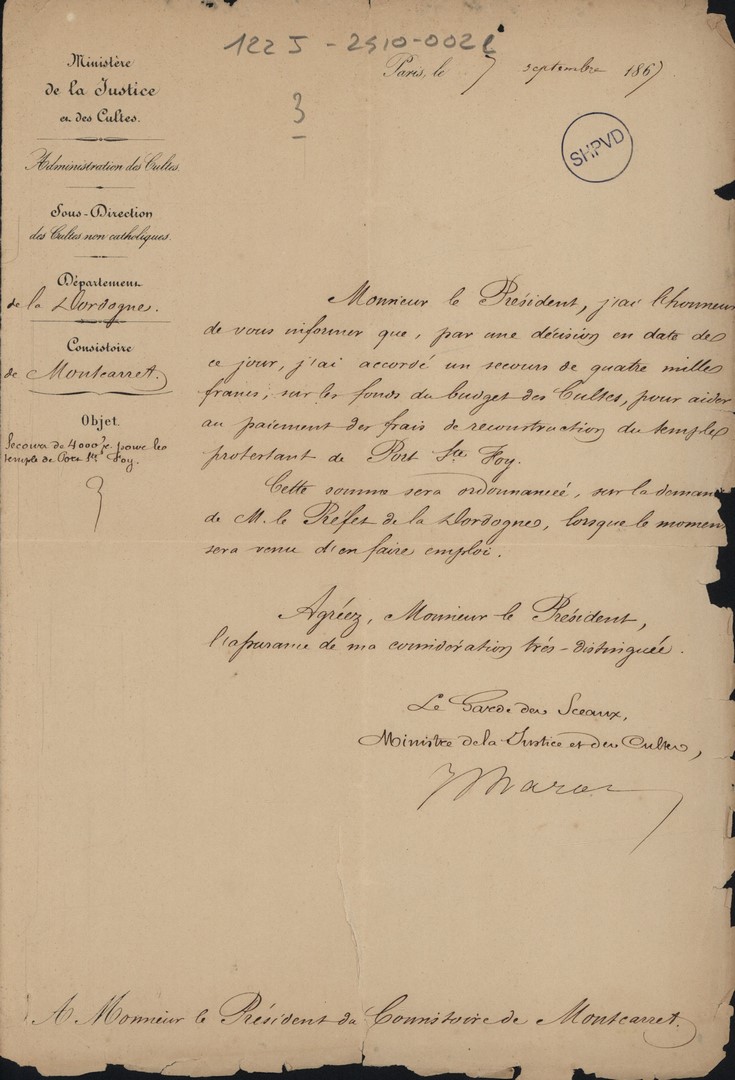 122 J - 2510-002
3
Paris, le 7 septembre 1867
SHPVD
Ministère
de la Justice
et des Cultes.
Administration des Cultes.
Sous-Direction
des Cultes non catholiques.
Département
de la Dordogne.
Consistoire
de Montcarret.
Objet.
Secours de 4000 f. pour le
temple de Port Ste Foy.
Monsieur le Président, j'ai l'honneur
de vous informer que, par une décision en date de
ce jour, j'ai accordé un secours de quatre mille
francs, sur les fonds du budget des Cultes, pour aider
au paiement des frais de reconstruction du temple
protestant de Port Ste Foy.
Cette somme sera ordonnancée, sur la deman
de M. le Préfet de la Dordogne, lorsque le momen
sera venu d'en faire emploi.
Agréez, Monsieur le Président,
l'assurance de ma considération très-distinguée.
Le Garde des Sceaux,
Ministre de la Justice et des Cultes,
A Monsieur le Président du Consistoire de Montcarret.